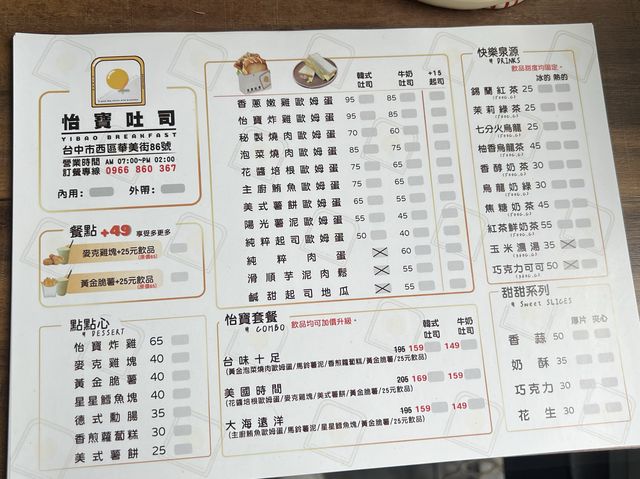 怡寶吐司
YIBAO BREAKFAST
台中市西區華美街86號
營業時間 AM 07:00~PM 02:00
訂餐專線 0966 860 367
內用： 外帶：
餐點 +49 享受多更多
麥克雞塊+25元飲品
(原價65)
黃金脆薯+25元飲品
(原價65)
點點心
DESSERT
怡寶炸雞 65
麥克雞塊 40
黃金脆薯 40
星星鱈魚塊 40
德式勳腸 35
香煎蘿蔔糕 30
美式薯餅 25
韓式吐司 牛奶吐司 +15起司
香蔥嫩雞歐姆蛋 95 85
怡寶炸雞歐姆蛋 95 85
秘製燒肉歐姆蛋 85 75
泡菜燒肉歐姆蛋 85 75
花醬培根歐姆蛋 75 65
主廚鮪魚歐姆蛋 75 65
美式薯餅歐姆蛋 65 55
陽光薯泥歐姆蛋 55 45
純粹起司歐姆蛋 50 40
純粹肉蛋 60
滑順芋泥肉鬆 55
鹹甜起司地瓜 55
怡寶套餐
COMBO
飲品均可加價升級。
韓式吐司 牛奶吐司
台味十足 195 159 149
(黃金泡菜燒肉歐姆蛋/馬鈴薯泥/香煎蘿蔔糕/黃金脆薯/25元飲品)
美國時間 205 169 159
(花醬培根歐姆蛋/麥克雞塊/美式薯餅/黃金脆薯/25元飲品)
大海遠洋 195 159 149
(主廚鮪魚歐姆蛋/馬鈴薯泥/星星鱈魚塊/黃金脆薯/25元飲品)
快樂泉源
DRINKS
飲品甜度均固定。
冰的 熱的
錫蘭紅茶 25
茉莉綠茶 25
七分火烏龍 25
柚香烏龍茶 45
香醇奶茶 30
烏龍奶綠 30
焦糖奶茶 45
紅茶鮮奶茶 55
玉米濃湯 35
巧克力可可 50
甜甜系列
Sweet SLICES
厚片 夾心
香蒜 50
奶酥 35
巧克力 30
花生 30